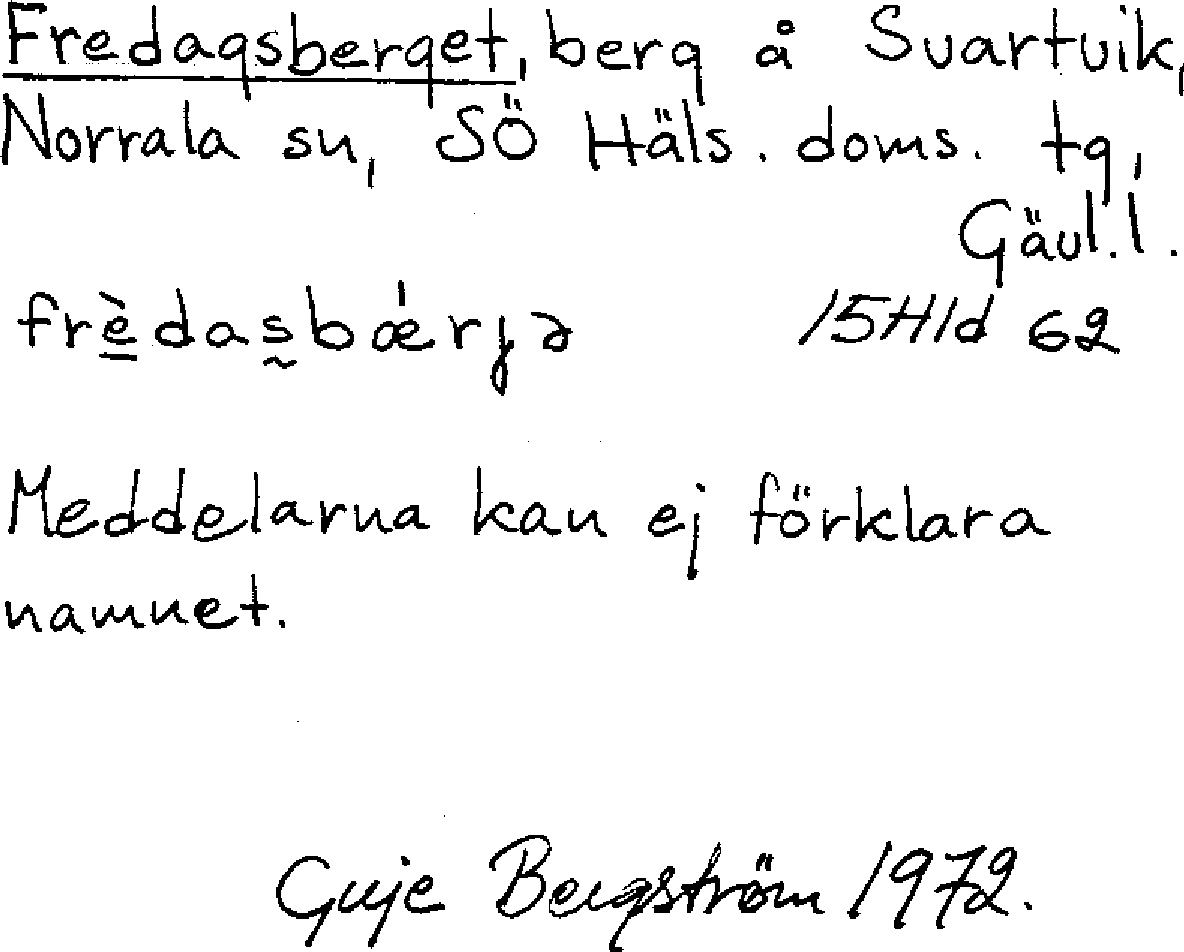 Fredagsberget, berg å Svartvik,
Norrala sn, SÖ Häls. doms. tg,
Gävl. l.
frè̱das̰bǿrɟə 15H1d 62
Meddelarna kan ej förklara
namnet.
Guje Bergström 1972.